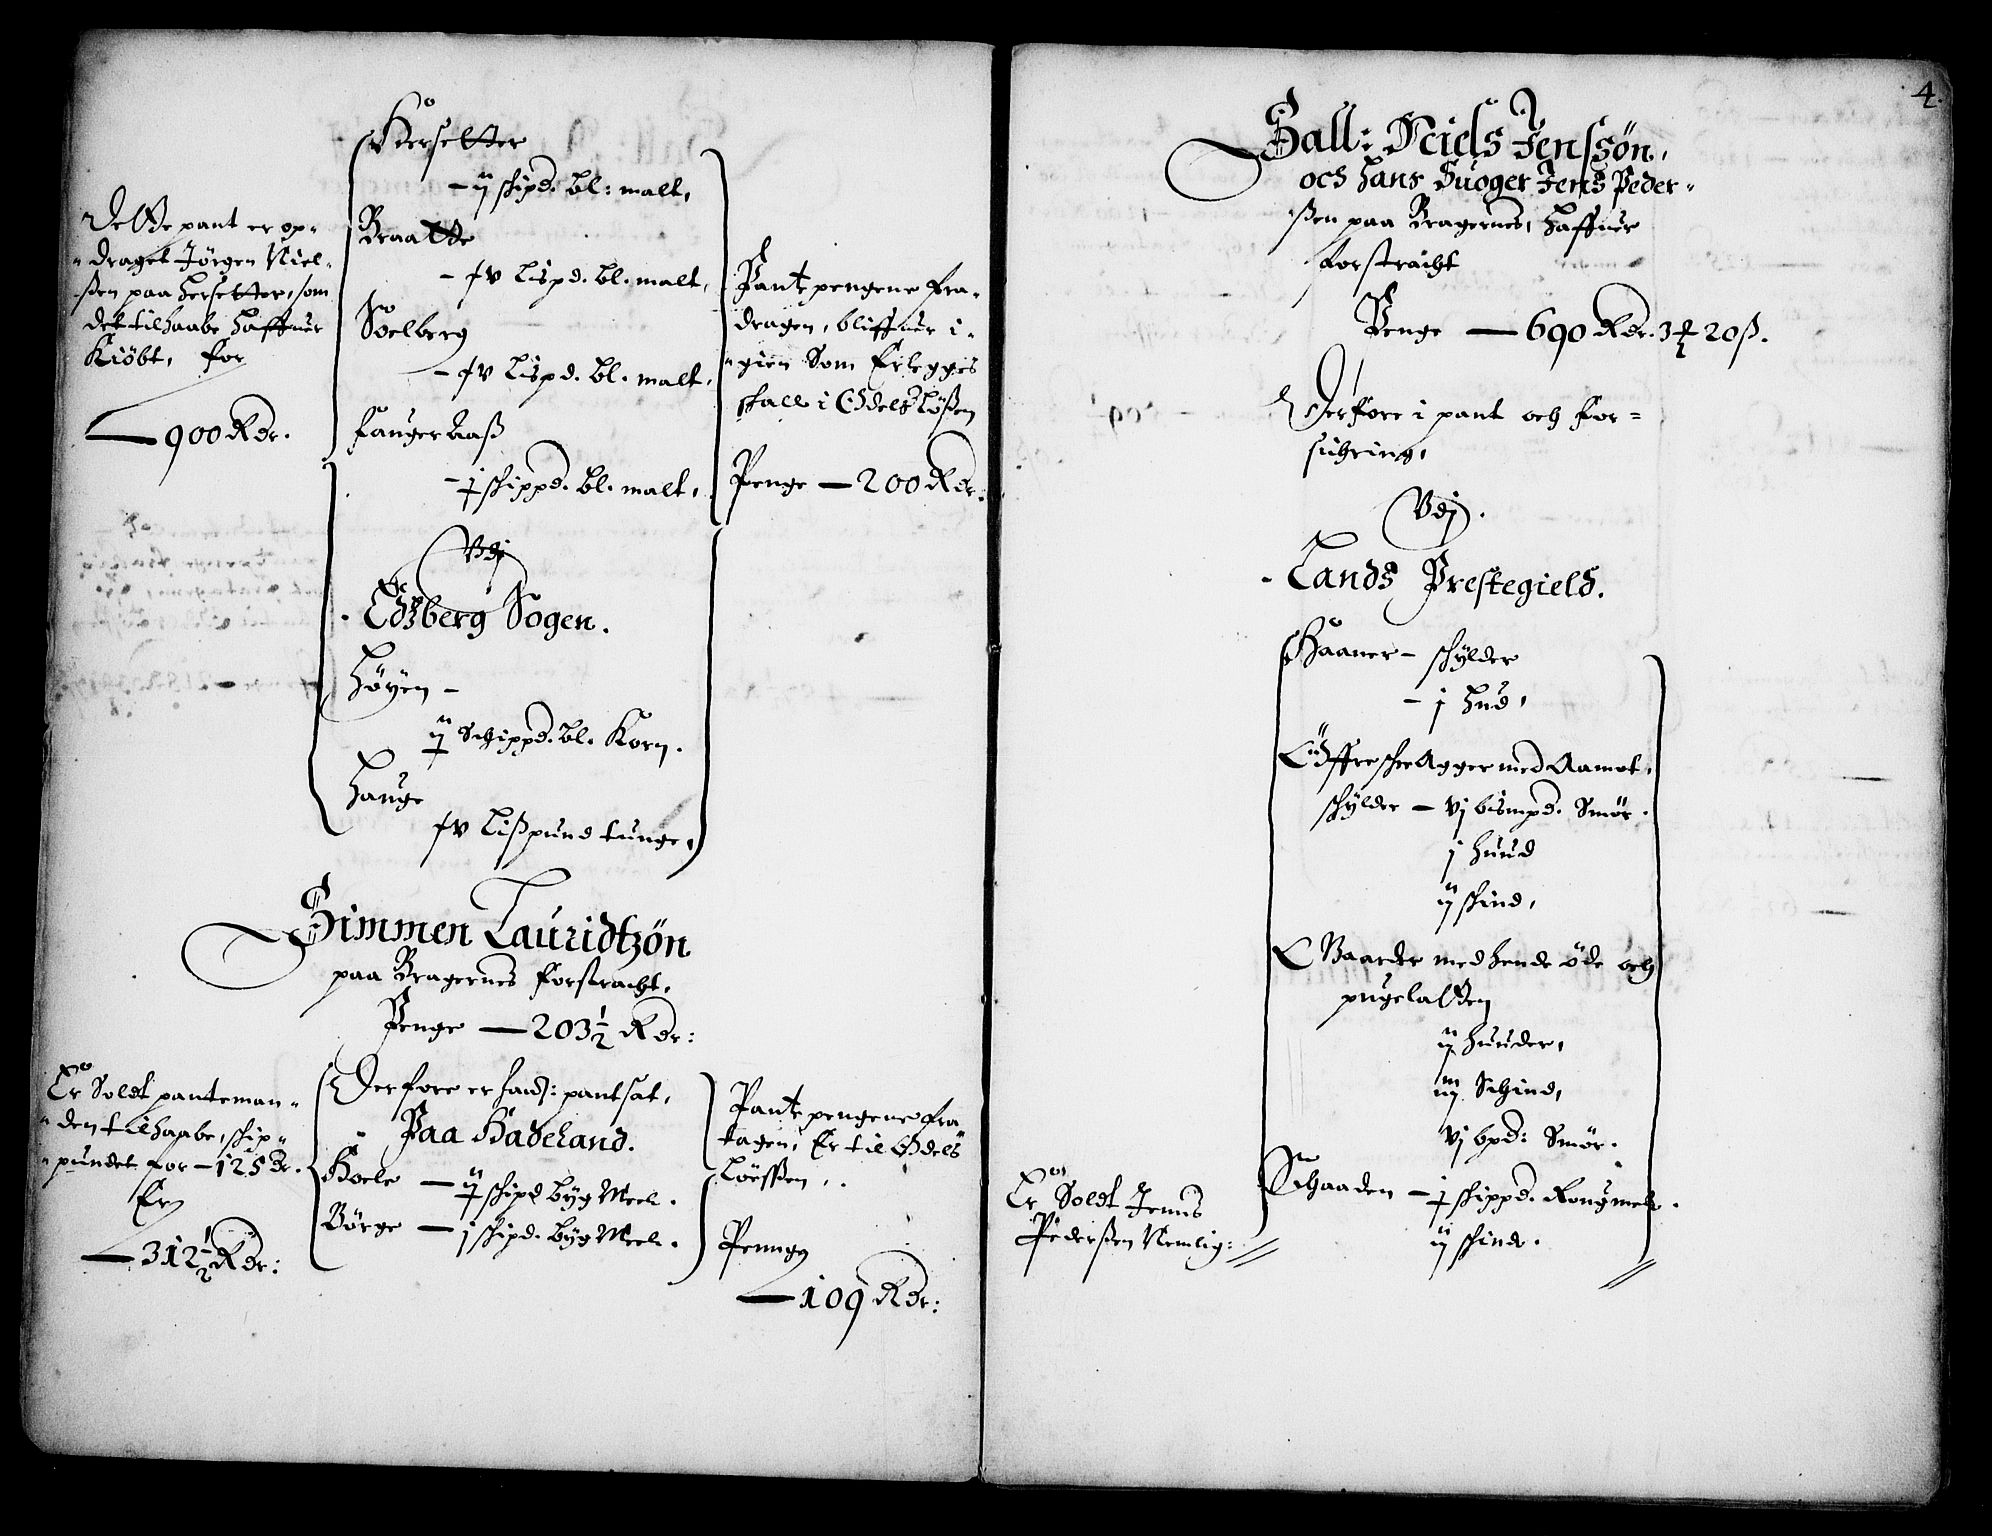 Dette pant er op-
draget Jörgen Niel-
ßen paa hersetter, som
det tilhaabe haffuer
Kiöbt, for
— 900 Rdr.
Hersetter
— ij skipd. bl: malt,
Braatte
— xv Lispd. bl. malt,
Soelberg
— xv Lispd. bl. malt,
fanger Aaß
— j skippd. bl. malt,
Pante pengene fra-
dragen, bliffuer i-
gien Som Erlegges
skall i Odels Lößen
Penge — 200 Rdr.
Vdj
Edzberg Sogen.
Höyen —
ij Schippd. bl. Korn.
Hauge
xv Lißpund tunge,
Simmen Lauridtzön
paa Bragernes forstracht,
Penge — 203½ Rdr:
Er Soldt panteman-
den tilhaabe, skip-
pundet for — 125 dr.
Er
— 312½ Rdr:
Derfore er hands: pantsat,
Paa Hadeland.
Hoele — ij skipd byg Meel.
Börge — j skipd. byg Meel.
Pante pengene fra
tagen, Er til Odels
Löeßen.
Penngge
— 109 Rdr:
4.
Sall: Niels Jenssön,
och hans Suoger Jens Peder-
ßen paa Bragernes, haffuer
forstracht
Penge — 690 Rdr. 3 ₰ 20 ß.
Derfore i pant och for-
sichring,
Vdj.
Lands Prestegield.
Haaner — skylder
— j hud,
Öffre schee Agger med Aamot,
skylder — vj bismpd. Smör.
j huud
ij skind,
Gaarder med hende öde och
pugelatten
ij huuder,
iij Schind,
vj bpd: Smör.
Schaaden — j skippd. Rougmele.
ij skind.
Er Soldt Jenns
Pederßen Nemlig: